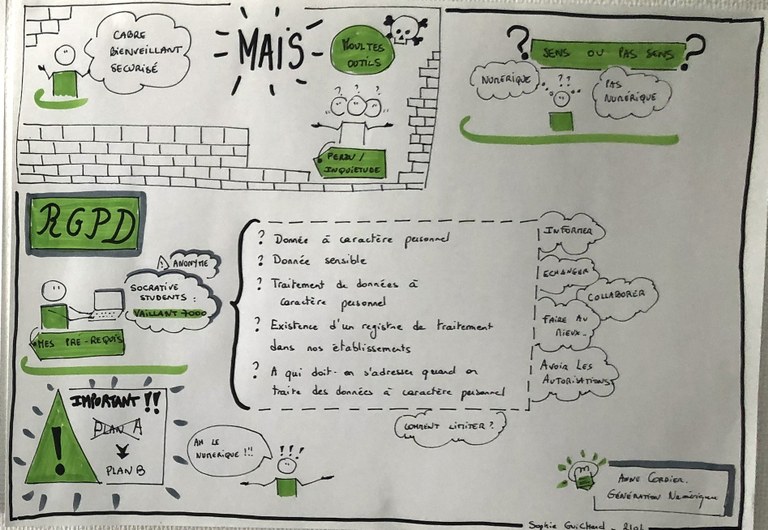 CADRE
BIENVEILLANT
SECURISÉ
MAIS
MOULTES
OUTILS
? ? ?
PERDU /
INQUIETUDE
? SENS OU PAS SENS ?
NUMERIQUE
? ?
PAS
NUMÉRIQUE
RGPD
⚠ ANONYME
SOCRATIVE
STUDENTS :
VAILLANT 7000
MES PRE-REQUIS
? Donnée à caractère personnel
? Donnée sensible
? Traitement de données à
caractère personnel
? Existence d'un registre de traitement
dans nos établissements
? A qui doit-on s'adresser quand on
traite des données à caractère personnel
INFORMER
ECHANGER
COLLABORER
FAIRE AU
MIEUX
AVOIR LES
AUTORISATIONS
COMMENT LIMITER ?
IMPORTANT !!
!
PLAN A
PLAN B
AH LE
NUMERIQUE !!!
!!!
ANNE CORDIER
GÉNÉRATION Numérique
Sophie Guichard